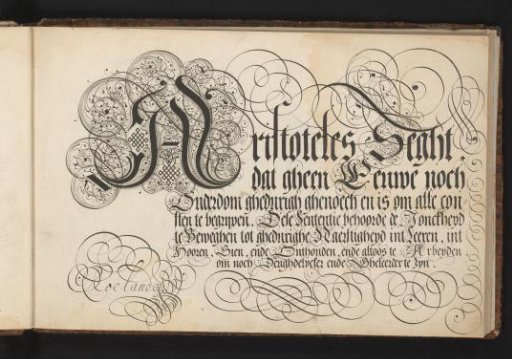 Aristoteles Seght,
dat gheen Eeuwe noch
Ouderdom ghedurigh ghenoech en is om alle con-
sten te begrijpen. Dese Sententie behoorde de Jonckheyd
te beweghen tot ghedurighe Naerstigheyd int Leeren, int
Hooren, Sien, ende Onthouden, ende altoos te Arbeyden
om noch Deughdelycker ende Gheleerder te zyn.